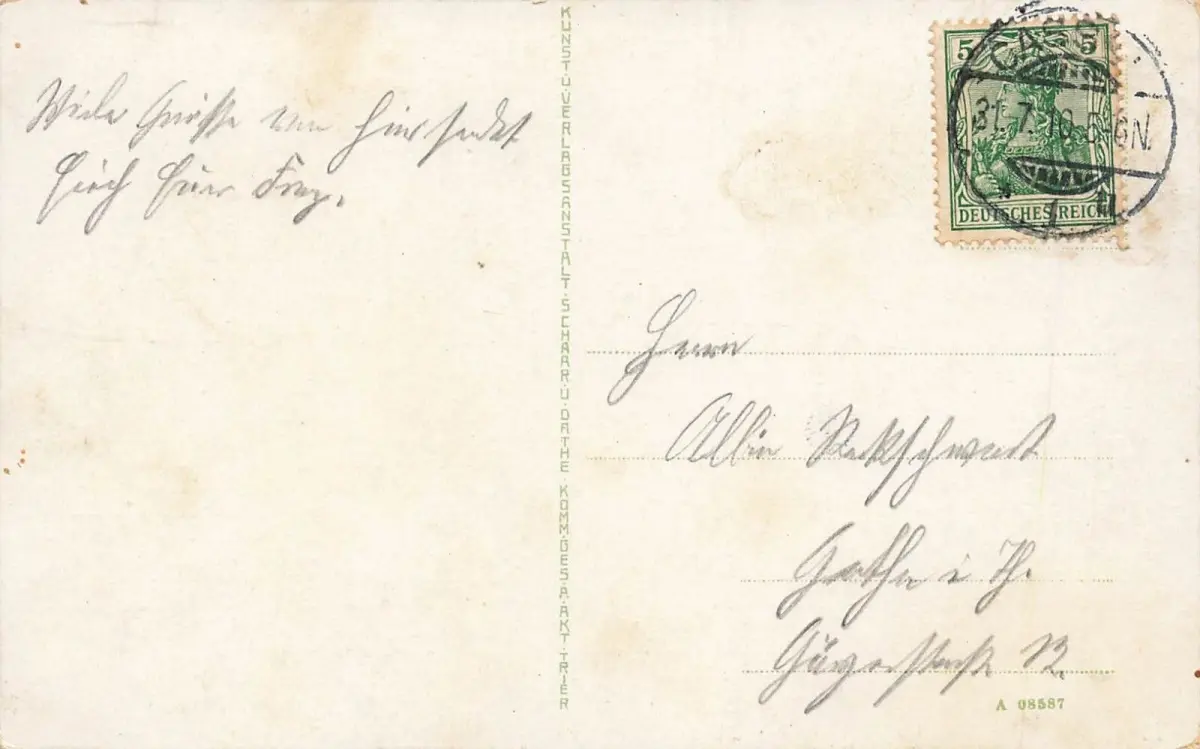 Viele Grüsse von hier sendet
Euch Euer Franz.
KUNST·U·VERLAGSANSTALT·SCHAAR·U·DATHE·KOMM·GES·A·AKT·TRIER
5 5
DEUTSCHES REICH
CASSEL
31.7.10.5-6N.
Herrn
Albin
Gotha i Th.
A 08587